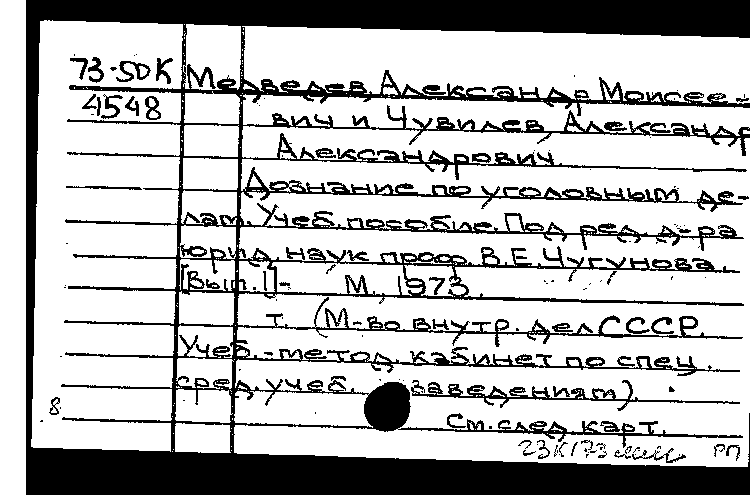 73-50К Медведев, Александр Моисее-
4548 вич и Чувилев, Александр
Александрович.
Дознание по уголовным де-
лам. Учеб. пособие. Под ред. д-ра
юрид. наук проф. В.Е. Чугунова.
[Вып. 1]- М., 1973.
т. (М-во внутр. дел СССР.
Учеб.-метод. кабинет по спец.
сред. учеб. заведениям).
См. след. карт.
8 23К/73 РП